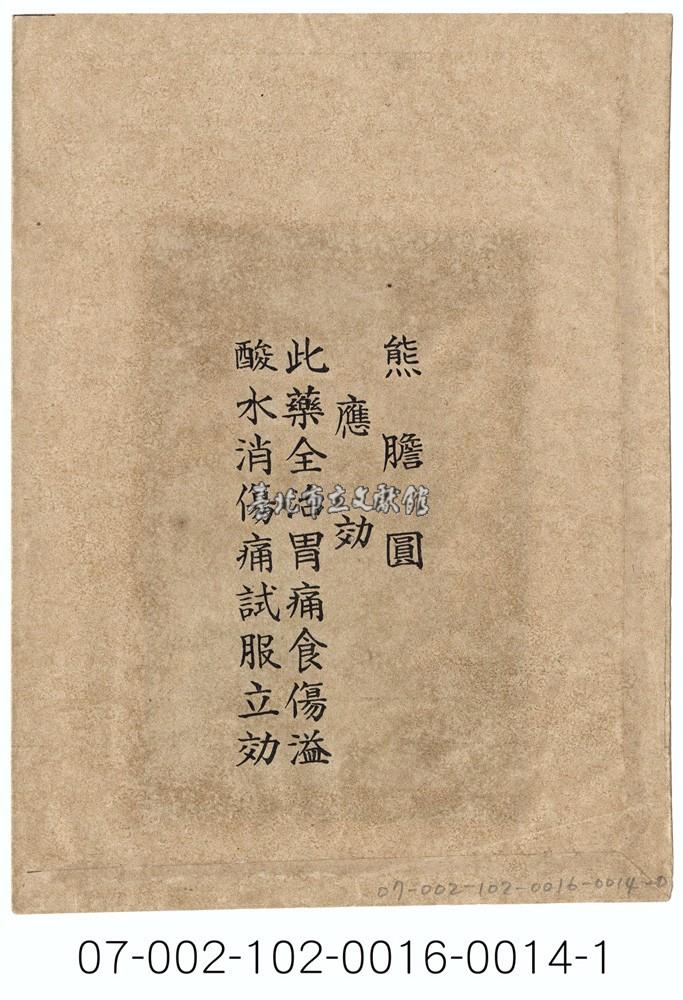 熊膽圓
應効
此藥全治胃痛食傷溢
酸水消傷痛試服立効
臺北市立文獻館
07-002-102-0016-0014-0
07-002-102-0016-0014-1